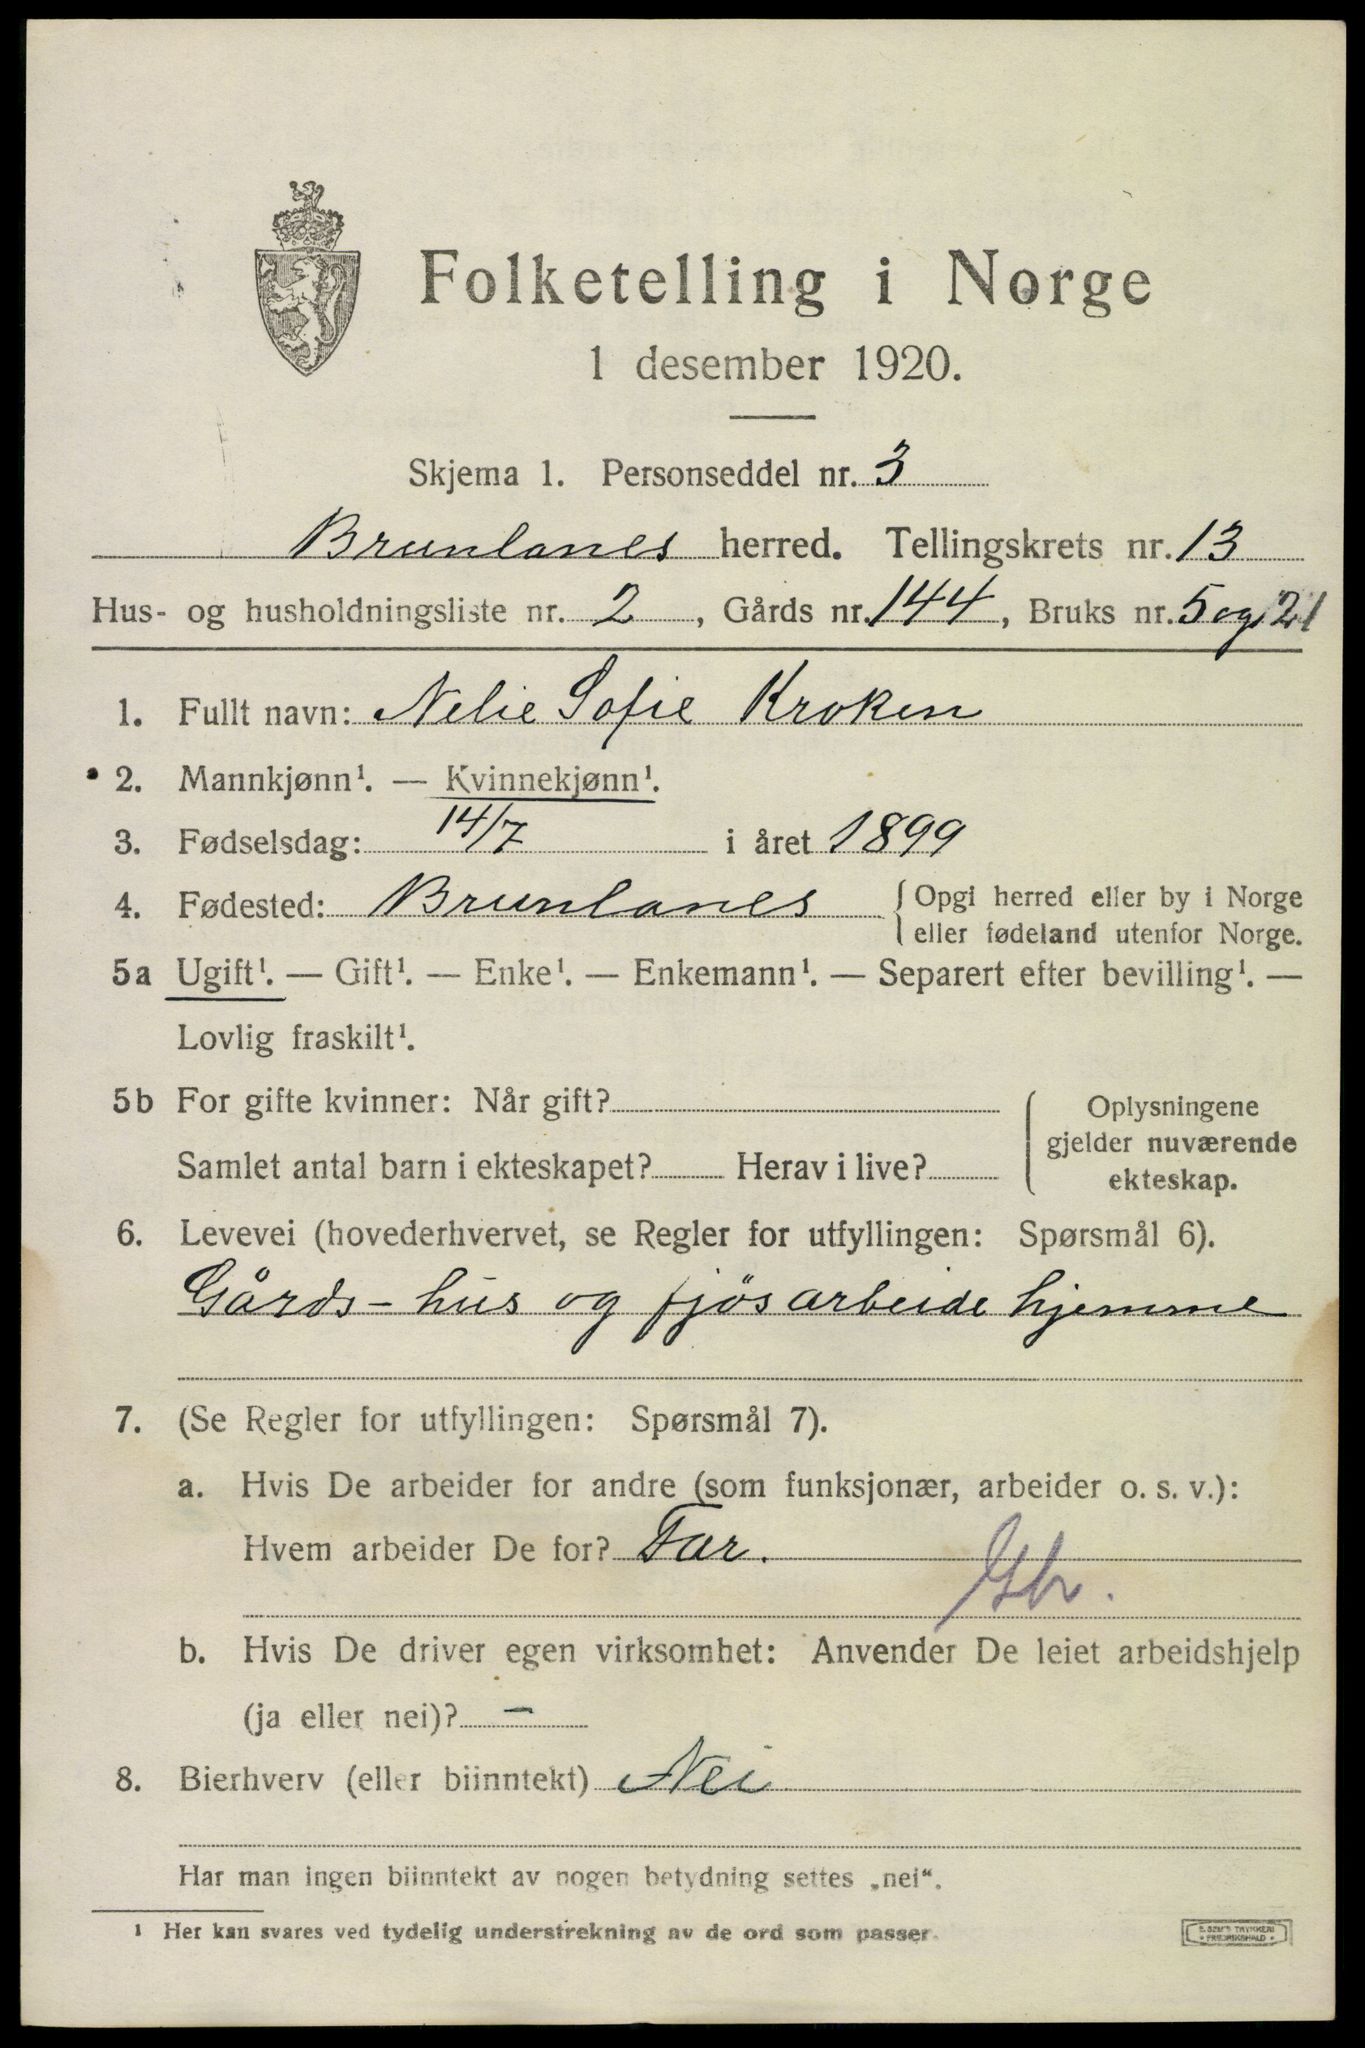 Folketelling i Norge
1 desember 1920.
Skjema 1. Personseddel nr. 3
Brunlanes herred. Tellingskrets nr. 13
Hus- og husholdningsliste nr. 2, Gårds nr. 144, Bruks nr. 5 og 21
1. Fullt navn: Nelie Sofie Kroken
2. Mannkjønn¹. — Kvinnekjønn¹.
3. Fødselsdag: 14/7 i året 1899
4. Fødested: Brunlanes { Opgi herred eller by i Norge
eller fødeland utenfor Norge.
5a Ugift¹. — Gift¹. — Enke¹. — Enkemann¹. — Separert efter bevilling¹. —
Lovlig fraskilt¹.
5b For gifte kvinner: Når gift?
Samlet antal barn i ekteskapet? Herav i live?
Oplysningene
gjelder nuværende
ekteskap.
6. Levevei (hovederhvervet, se Regler for utfyllingen: Spørsmål 6).
Gårds-hus og fjøsarbeide hjemme
7. (Se Regler for utfyllingen: Spørsmål 7).
a. Hvis De arbeider for andre (som funksjonær, arbeider o. s. v.):
Hvem arbeider De for? Far.
Gbr.
b. Hvis De driver egen virksomhet: Anvender De leiet arbeidshjelp
(ja eller nei)? —
8. Bierhverv (eller biinntekt) Nei
Har man ingen biinntekt av nogen betydning settes „nei“.
¹ Her kan svares ved tydelig understrekning av de ord som passer.
E. SEM'S TRYKKERI
• FREDRIKSHALD •